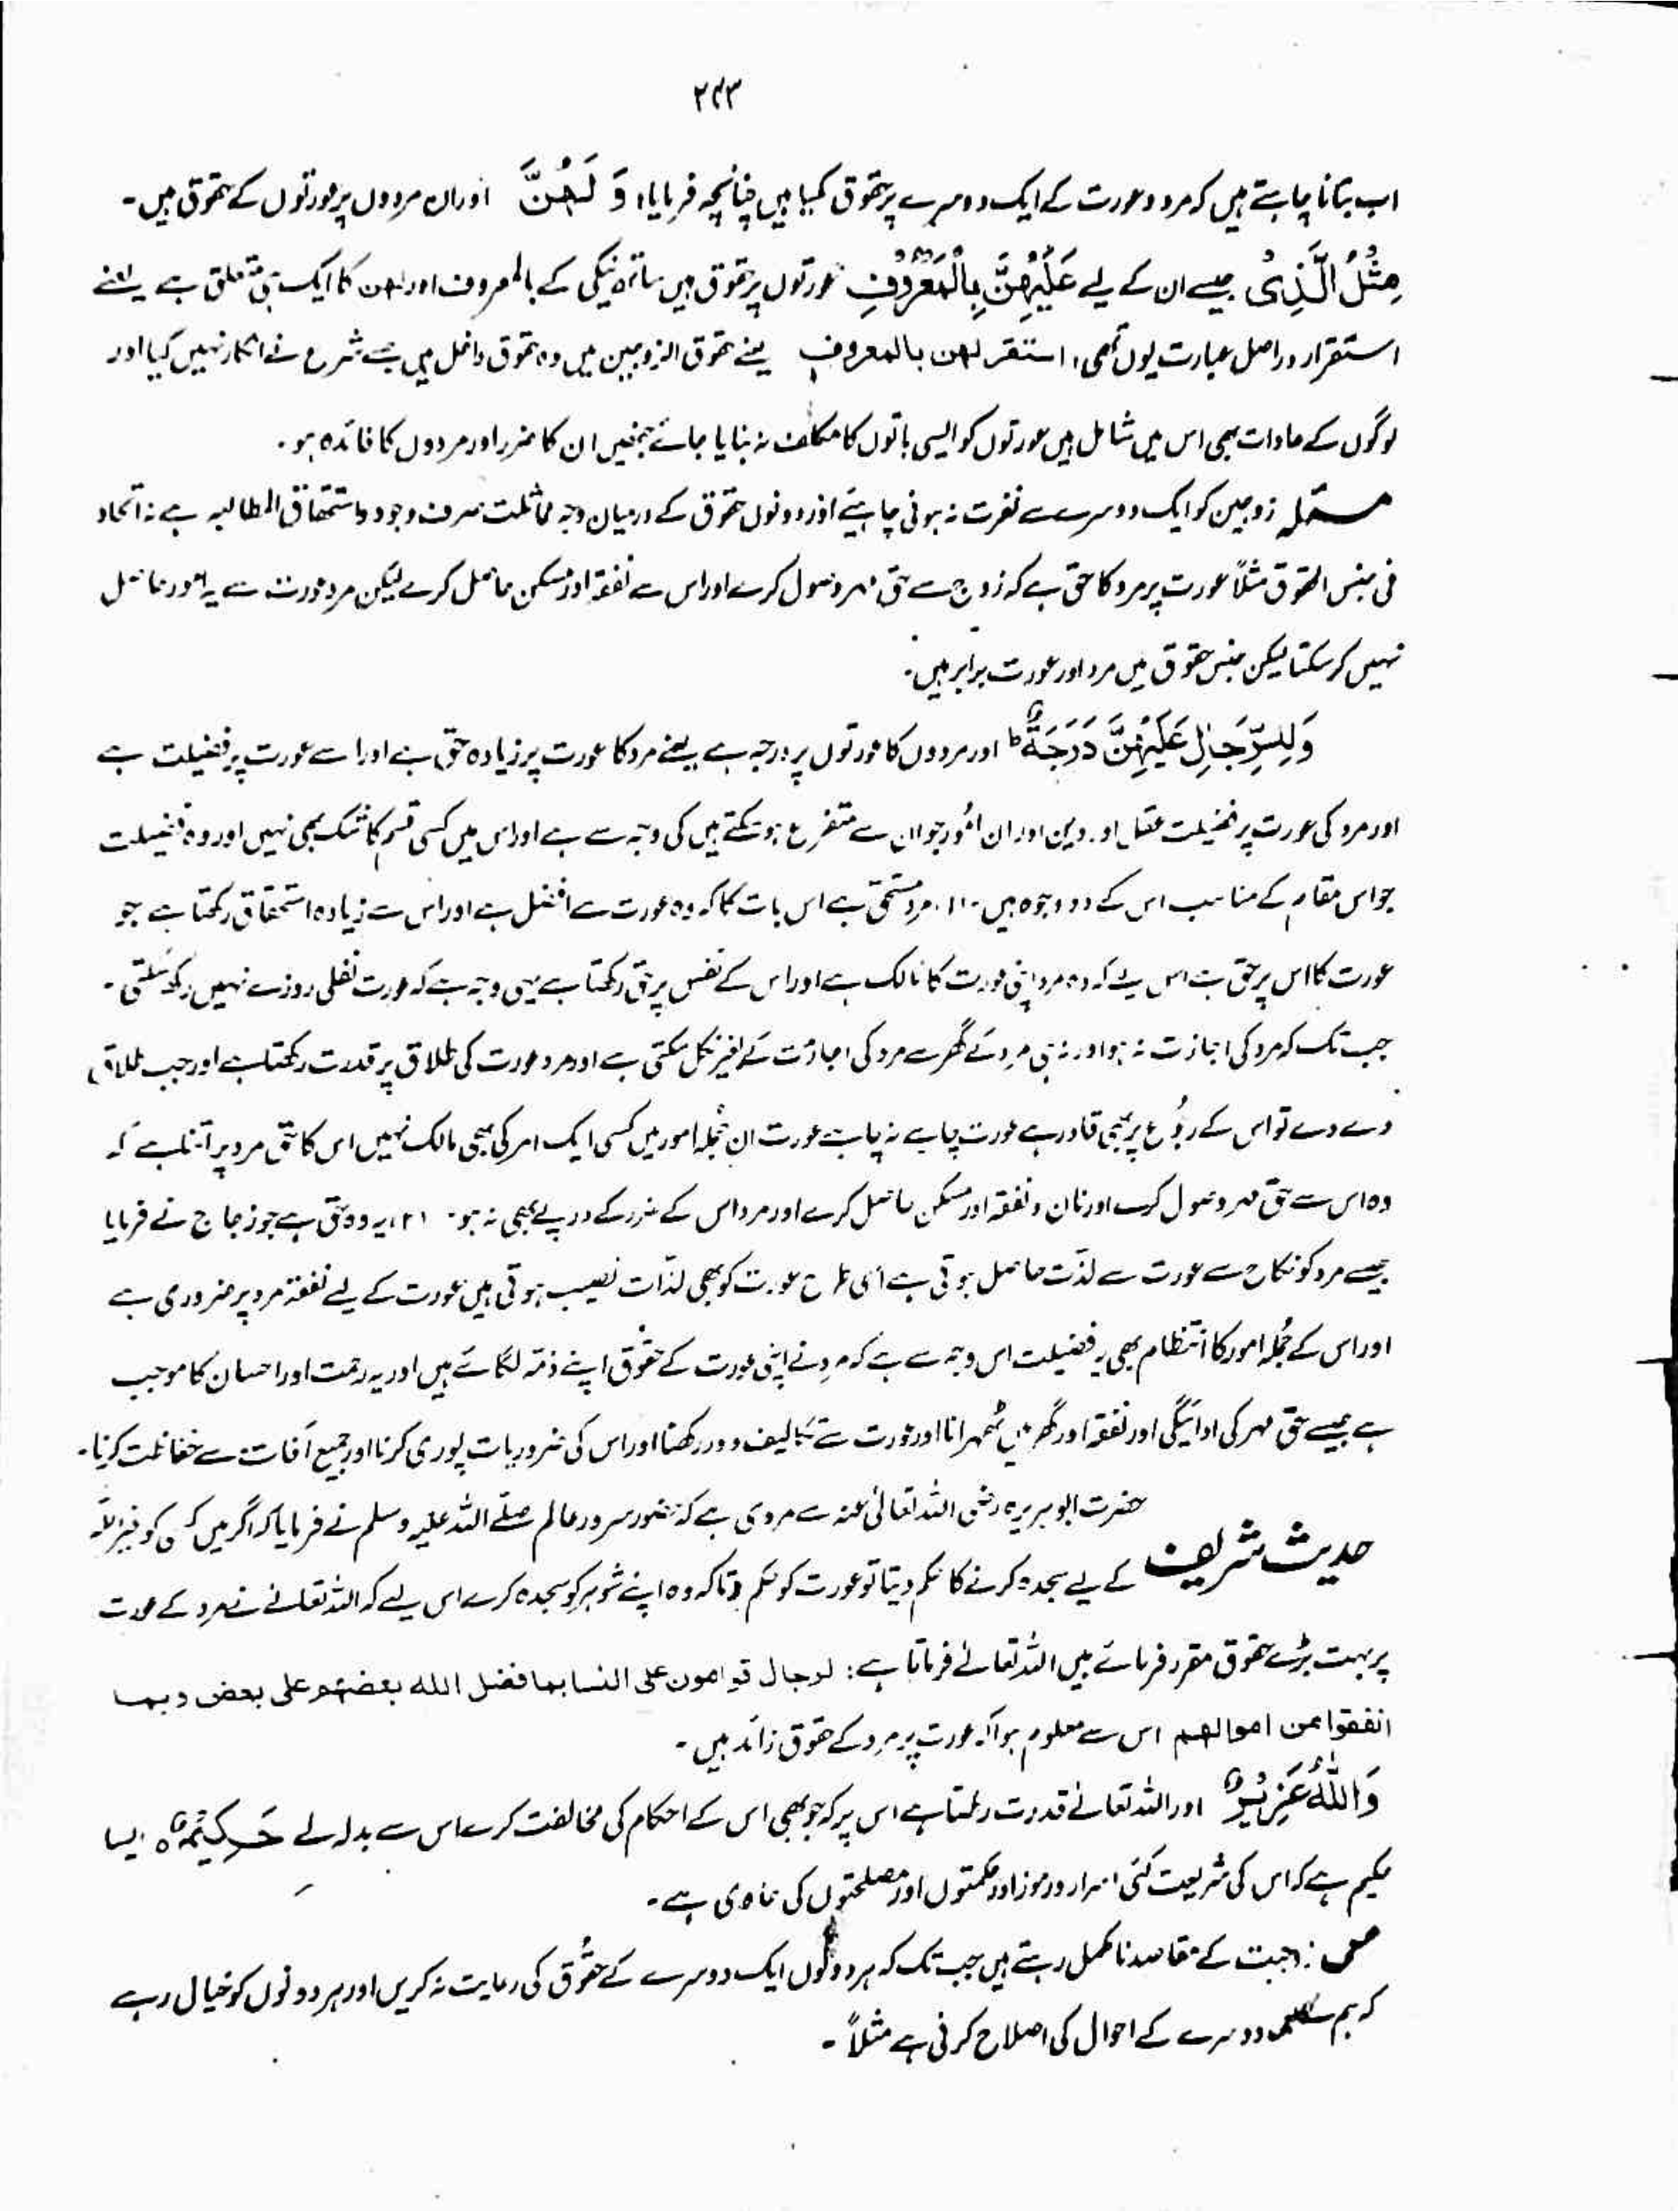 ۲۷۳
اب بتانا چاہتے ہیں کہ مرد و عورت کے ایک دوسرے پر حقوق کیا ہیں چنانچہ فرمایا؛ وَ لَهُنَّ اور ان مردوں پر عورتوں کے حقوق ہیں۔
مِثْلُ الَّذِیْ جیسے ان کے لیے عَلَیْهِنَّ بِالْمَعْرُوْفِ عورتوں پر حقوق ہیں ساتھ نیکی کے بالمعروف اور لهن کا ایک ہی متعلق ہے یعنے
استقرار دراصل عبارت یوں تھی، استقر لهن بالمعروف یعنے حقوق الزوجین میں وہ حقوق داخل ہیں جسے شرع نے انکار نہیں کیا اور
لوگوں کے عادات بھی اس میں شامل ہیں عورتوں کو ایسی باتوں کا مکلف نہ بنایا جائے جنھیں ان کا ضرر اور مردوں کا فائدہ ہو۔
مسئلہ زوجین کو ایک دوسرے سے نفرت نہ ہونی چاہئیے اور دونوں حقوق کے درمیان وجہ مماثلت صرف وجود و استحقاق المطالبہ ہے نہ اتحاد
فی جنس الحقوق مثلاً عورت پر مرد کا حق ہے کہ زوج سے حق مہر وصول کرے اور اس سے نفقہ اور مسکن حاصل کرے لیکن مرد عورت سے یہ امور حاصل
نہیں کر سکتا لیکن جنس حقوق میں مرد اور عورت برابر ہیں۔
وَلِلرِّجَالِ عَلَیْهِنَّ دَرَجَةٌ ط اور مردوں کا عورتوں پر درجہ ہے یعنے مرد کا عورت پر زیادہ حق ہے اور اسے عورت پر فضیلت ہے
اور مرد کی عورت پر فضیلت عقل اور دین اور ان امور جو ان سے متفرع ہو سکتے ہیں کی وجہ سے ہے اور اس میں کسی قسم کا شک بھی نہیں اور وہ فضیلت
جو اس مقام کے مناسب اس کے دو وجوہ ہیں۔ ۱۱، مرد مستحق ہے اس بات کا کہ وہ عورت سے افضل ہے اور اس سے زیادہ استحقاق رکھتا ہے جو
عورت کا اس پر حق ہے اس لیے کہ وہ مرد اپنی عورت کا مالک ہے اور اس کے نفس پر حق رکھتا ہے یہی وجہ ہے کہ عورت نفلی روزے نہیں رکھ سکتی۔
جب تک کہ مرد کی اجازت نہ ہو اور نہ ہی مرد کے گھر سے مرد کی اجازت کے بغیر نکل سکتی ہے اور مرد عورت کی طلاق پر قدرت رکھتا ہے اور جب طلاق
دے دے تو اس کے رجوع پر بھی قادر ہے عورت چاہے نہ چاہے عورت ان جملہ امور میں کسی ایک امر کی بھی مالک نہیں اس کا حق مرد پر اتنا ہے کہ
وہ اس سے حق مہر وصول کرے اور نان و نفقہ اور مسکن حاصل کرے اور مرد اس کے ضرر کے درپے بھی نہ ہو۔ ۱۲، یہ وہ حق ہے جو زجاج نے فرمایا
جیسے مرد کو نکاح سے عورت سے لذت حاصل ہوتی ہے اسی طرح عورت کو بھی لذات نصیب ہوتی ہیں عورت کے لیے نفقہ مرد پر ضروری ہے
اور اس کے جملہ امور کا انتظام بھی یہ فضیلت اس وجہ سے ہے کہ مرد نے اپنی عورت کے حقوق اپنے ذمہ لگائے ہیں اور یہ رحمت اور احسان کا موجب
ہے جیسے حق مہر کی ادائیگی اور نفقہ اور گھر میں ٹھہرانا اور عورت سے تکالیف دور رکھنا اور اس کی ضروریات پوری کرنا اور جمیع آفات سے حفاظت کرنا۔
حضرت ابوہریرہ رضی اللہ تعالیٰ عنہ سے مروی ہے کہ حضور سرور عالم صلے اللہ علیہ وسلم نے فرمایا کہ اگر میں کسی کو غیر اللہ
حدیث شریف کے لیے سجدہ کرنے کا حکم دیتا تو عورت کو حکم دیتا کہ وہ اپنے شوہر کو سجدہ کرے اس لیے کہ اللہ تعالےٰ نے مرد کے عورت
پر بہت بڑے حقوق مقرر فرمائے ہیں اللہ تعالےٰ فرماتا ہے: لرجال قوامون علی النسا بما فضل الله بعضهم علی بعض و بما
انفقوا من اموالهم اس سے معلوم ہوا کہ عورت پر مرد کے حقوق زائد ہیں۔
وَاللهُ عَزِیْزٌ اور اللہ تعالےٰ قدرت رکھتا ہے اس پر کہ جو بھی اس کے احکام کی مخالفت کرے اس سے بدلہ لے حَکِیْمٌ ہ ایسا
حکیم ہے کہ اس کی شریعت کئی اسرار و رموز اور حکمتوں اور مصلحتوں کی حاوی ہے۔
زوجیت کے مقاصد نامکمل رہتے ہیں جب تک کہ ہر دونوں ایک دوسرے کے حقوق کی رعایت نہ کریں اور ہر دونوں کو خیال رہے
کہ ہم دوسرے کے احوال کی اصلاح کرنی ہے مثلاً۔